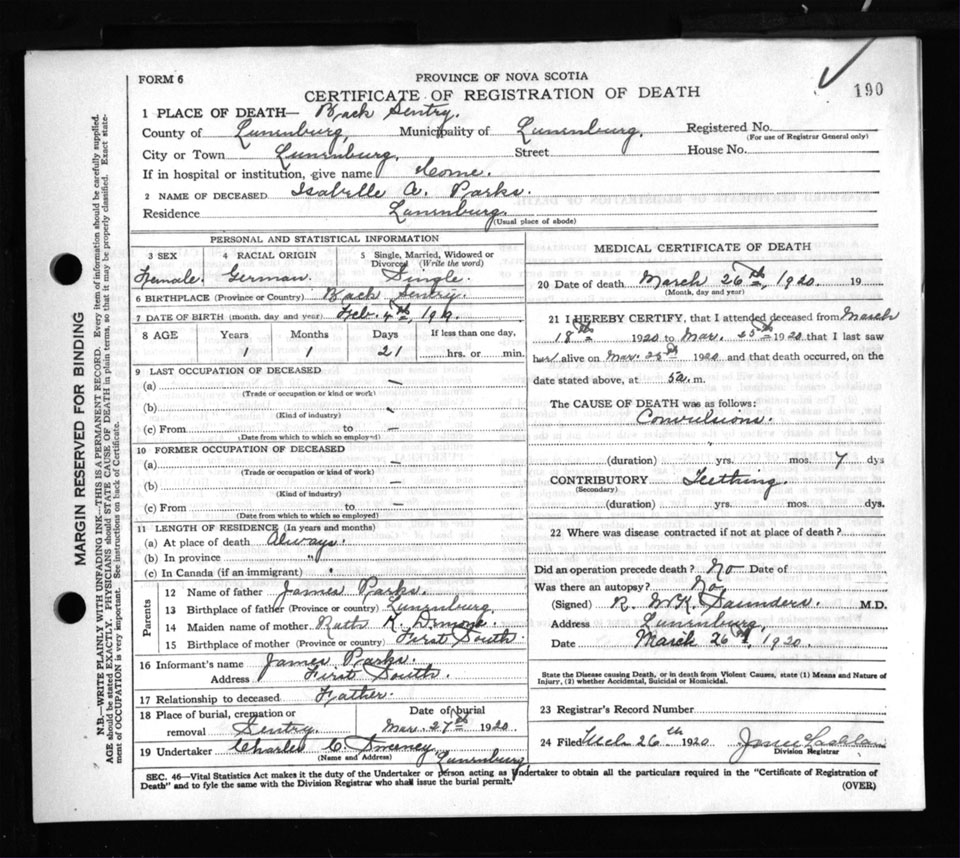 FORM 6
PROVINCE OF NOVA SCOTIA
190
CERTIFICATE OF REGISTRATION OF DEATH
1 PLACE OF DEATH— Back Sentry.
County of Lunenburg, Municipality of Lunenburg, Registered No.
(For use of Registrar General only)
City or Town Lunenburg, Street House No.
If in hospital or institution, give name Home.
2 NAME OF DECEASED Isabelle A. Parks.
Residence Lunenburg.
(Usual place of abode)
PERSONAL AND STATISTICAL INFORMATION
3 SEX 4 RACIAL ORIGIN 5 Single, Married, Widowed or Divorced (Write the word)
Female. German. Single.
6 BIRTHPLACE (Province or Country) Back Sentry.
7 DATE OF BIRTH (month, day and year) Feb.
8 AGE Years Months Days If less than one day,
1 1 21 hrs. or min.
9 LAST OCCUPATION OF DECEASED
(a) —
(Trade or occupation or kind of work)
(b)
(Kind of industry)
(c) From to —
(Date from which to which so employed)
10 FORMER OCCUPATION OF DECEASED
(a) —
(Trade or occupation or kind of work)
(b) —
(Kind of industry)
(c) From to —
(Date from which to which so employed)
11 LENGTH OF RESIDENCE (In years and months)
(a) At place of death Always.
(b) In province "
(c) In Canada (if an immigrant)
Parents
12 Name of father James Parks.
13 Birthplace of father (Province or country) Lunenburg.
14 Maiden name of mother Ruth K.
15 Birthplace of mother (Province or country) First South.
16 Informant's name James Parks.
Address First South.
17 Relationship to deceased Father.
18 Place of burial, cremation or removal Sentry. Date of burial Mar. 27th 1920
19 Undertaker Charles C. Sweeney, Lunenburg
(Name and Address)
MEDICAL CERTIFICATE OF DEATH
20 Date of death March 26th, 1920. 19
(Month, day and year)
21 I HEREBY CERTIFY, that I attended deceased from March
18th 1920 to Mar. 25th 1920 that I last saw
her alive on Mar. 25th 1920 and that death occurred, on the
date stated above, at 5a. m.
The CAUSE OF DEATH was as follows:
Convulsions.
(duration) yrs. mos. 7 dys
CONTRIBUTORY Teething.
(Secondary)
(duration) yrs. mos. dys.
22 Where was disease contracted if not at place of death?
Did an operation precede death? No Date of
Was there an autopsy? No.
(Signed) R. McK. Saunders. M.D.
Address Lunenburg,
Date March 26th, 1920.
State the Disease causing Death, or in death from Violent Causes, state (1) Means and Nature of
Injury, (2) whether Accidental, Suicidal or Homicidal.
23 Registrar's Record Number
24 Filed Mch 26th 1920
Division Registrar
SEC. 46—Vital Statistics Act makes it the duty of the Undertaker or person acting as Undertaker to obtain all the particulars required in the "Certificate of Registration of
Death" and to fyle the same with the Division Registrar who shall issue the burial permit.
(OVER)
MARGIN RESERVED FOR BINDING
N.B.—WRITE PLAINLY WITH UNFADING INK—THIS IS A PERMANENT RECORD. Every item of information should be carefully supplied.
AGE should be stated EXACTLY. PHYSICIANS should STATE CAUSE OF DEATH in plain terms, so that it may be properly classified. Exact state-
ment of OCCUPATION is very important. See instructions on back of Certificate.